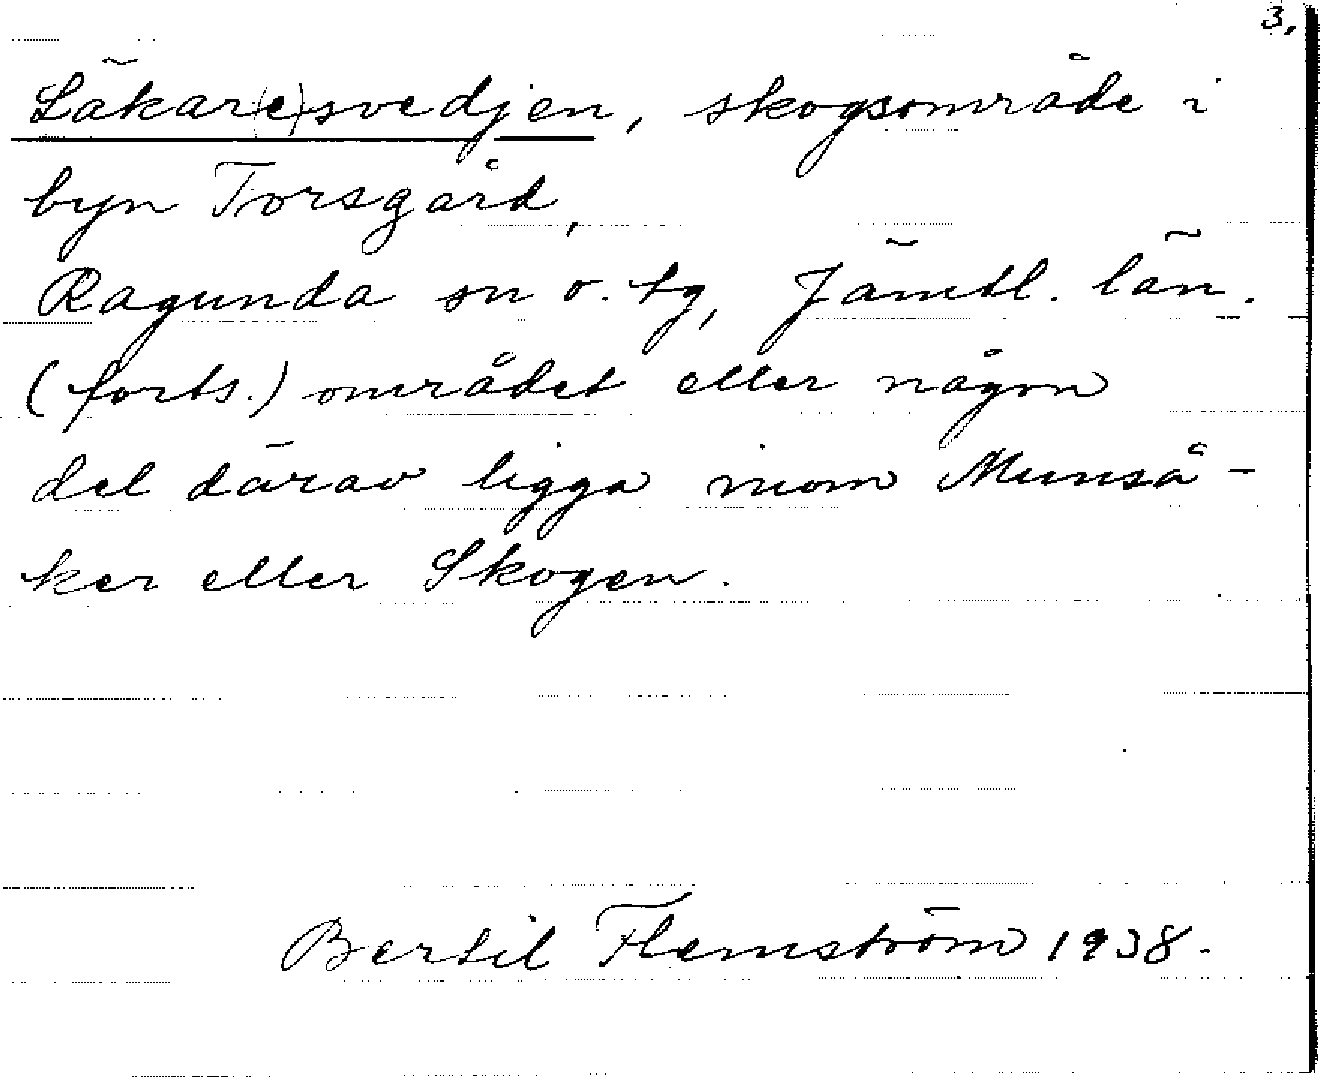 3.
Läkar(e)svedjen, skogsområde i
byn Torsgård,
Ragunda sn o. tg, Jämtl. län.
(forts.) området eller någon
del därav ligga inom Munså-
ker eller Skogen.
Bertil Flemström 1938.